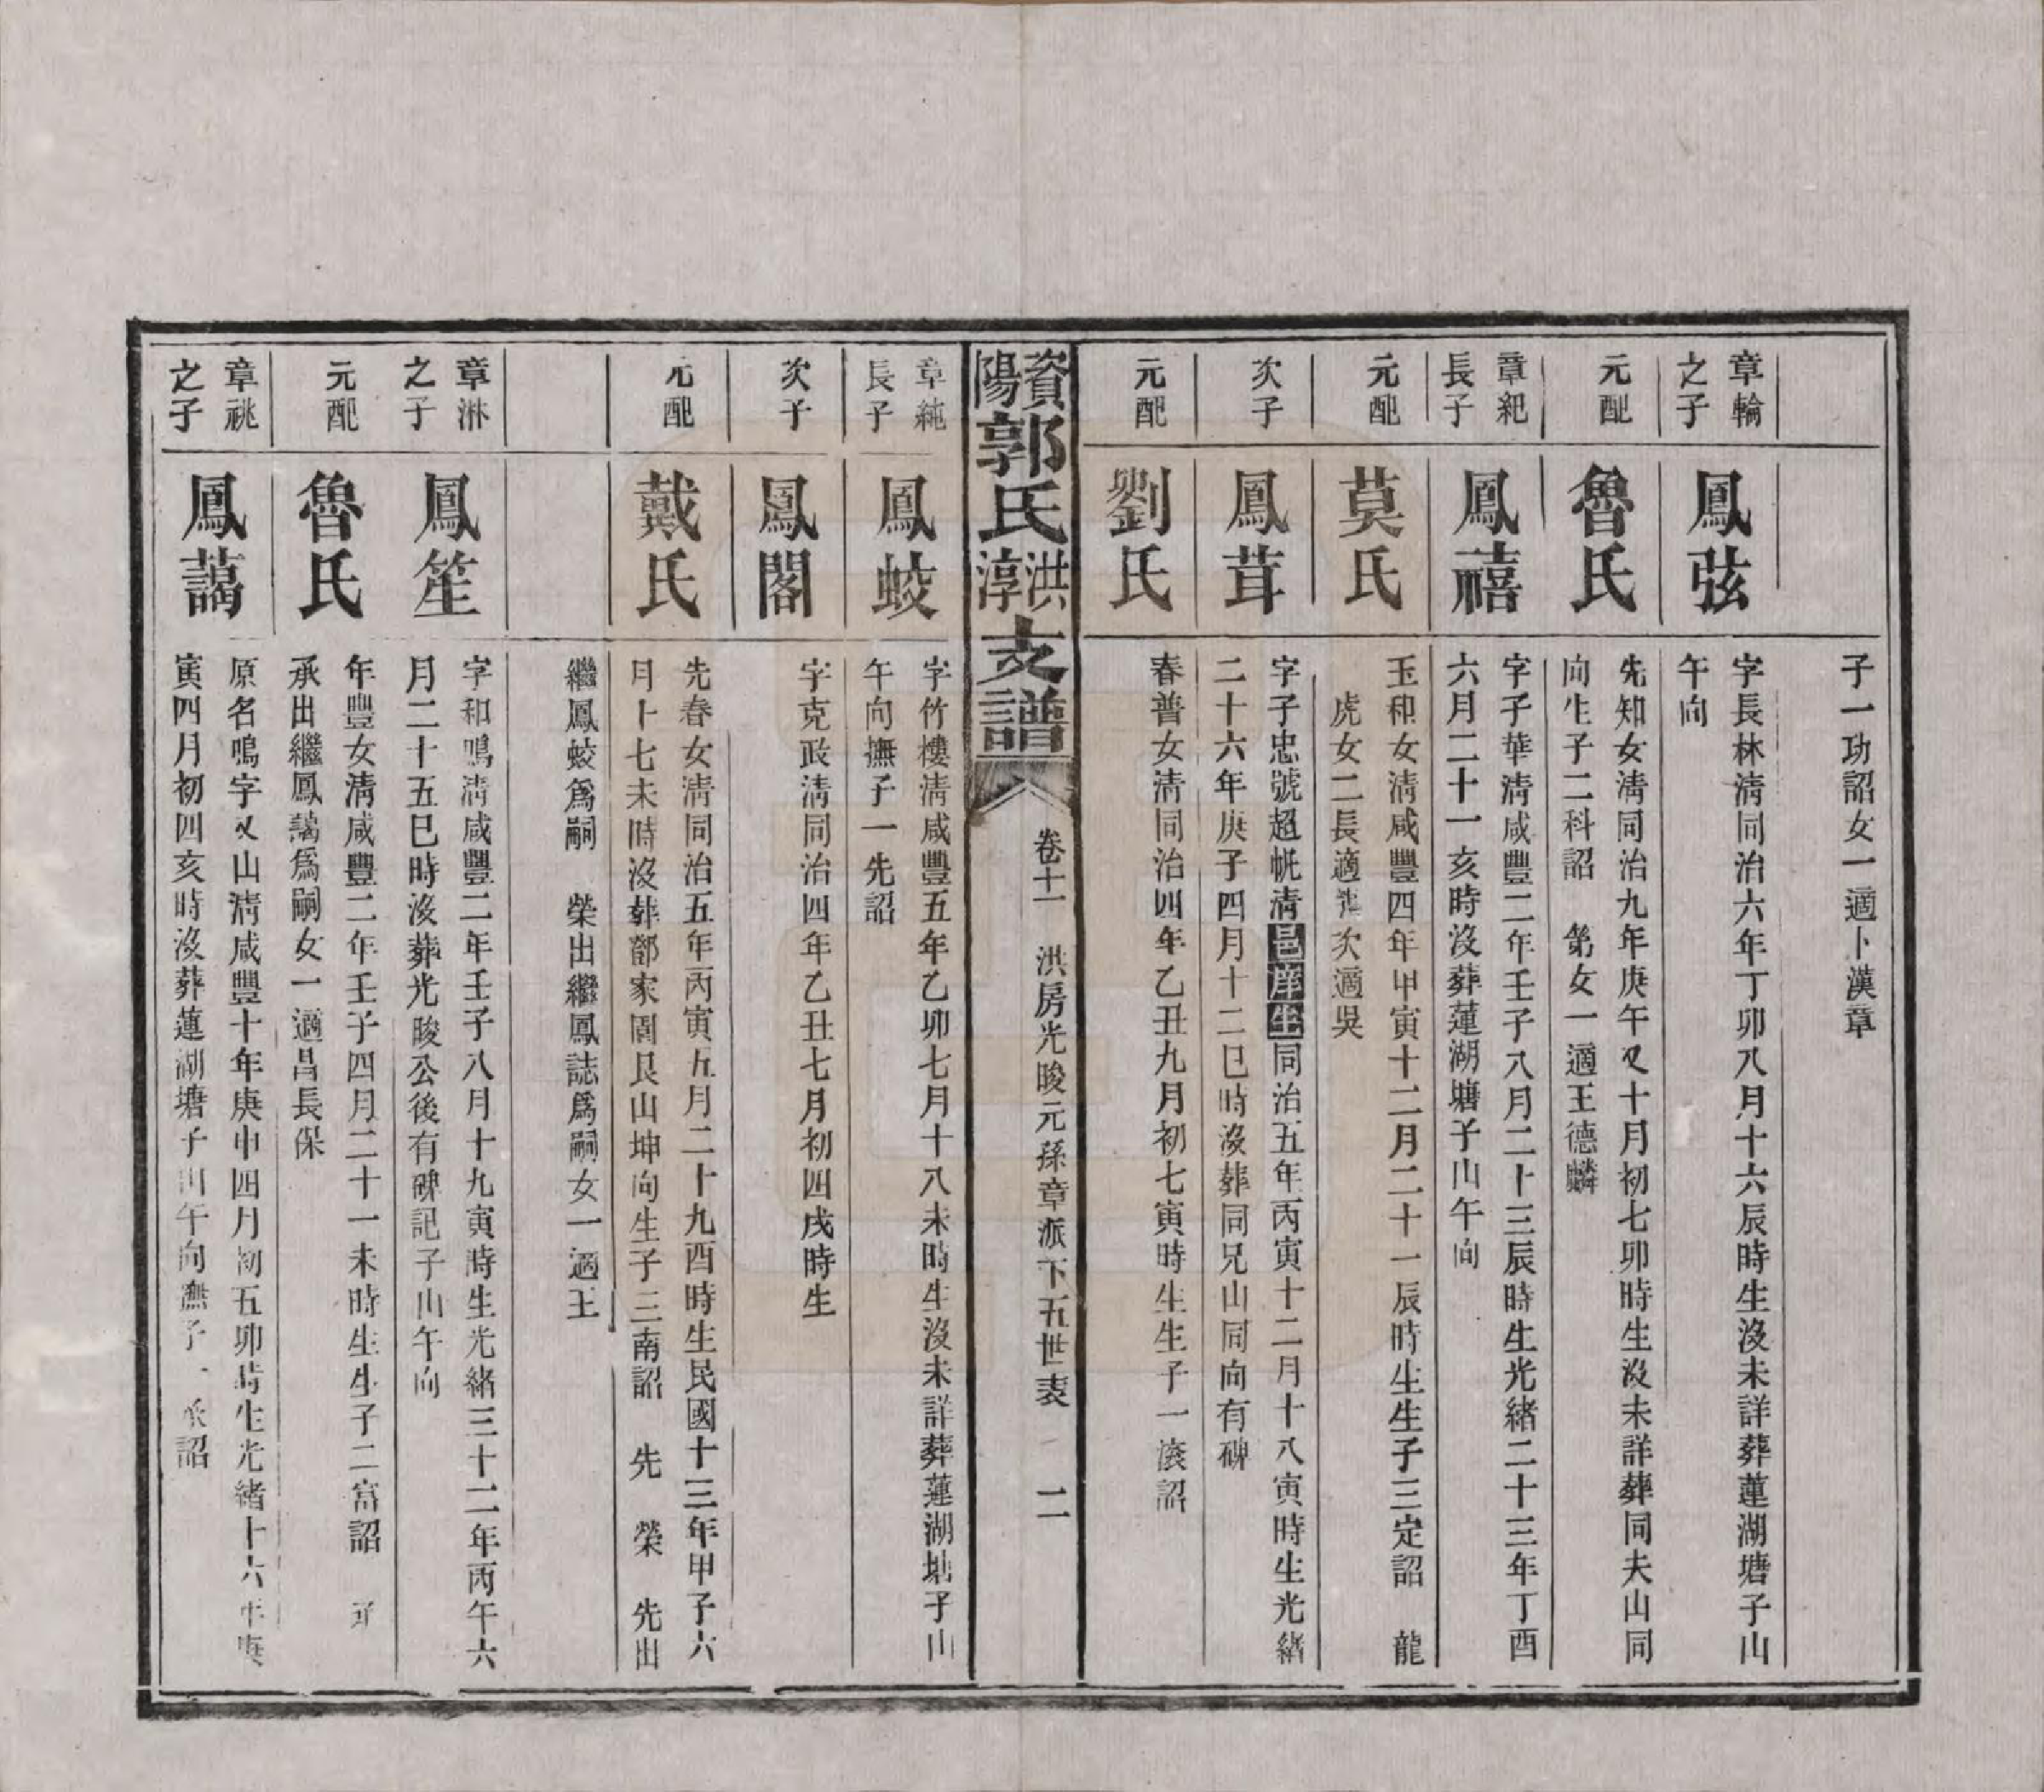 子一功詔女一適卜漢章
章輪之子
鳳弦
字長林清同治六年丁卯八月十六辰時生沒未詳葬蓮湖塘子山
午向
元配
魯氏
先知女清同治九年庚午又十月初七卯時生沒未詳葬同夫山同
向生子二科詔　第女一適王德麟
章紀長子
鳳禧
字子華清咸豐二年壬子八月二十三辰時生光緒二十三年丁酉
六月二十一亥時沒葬蓮湖塘子山午向
元配
莫氏
玉和女清咸豐四年甲寅十二月二十一辰時生生子三定詔　龍
虎女二長適龔次適吳
次子
鳳茸
字子忠號超帆清邑庠生同治五年丙寅十二月十八寅時生光緒
二十六年庚子四月十二巳時沒葬同兄山同向有碑
元配
劉氏
春普女清同治四年乙丑九月初七寅時生生子一滾詔
資陽郭氏洪淳支譜
卷十一　洪房光晙元孫章派下五世表　二
章純長子
鳳蛟
字竹樓清咸豐五年乙卯七月十八未時生沒未詳葬蓮湖塘子山
午向撫子一先詔
次子
鳳閣
字克政清同治四年乙丑七月初四戌時生
元配
戴氏
先春女清同治五年丙寅五月二十九酉時生民國十三年甲子六
月十七未時沒葬鄧家園艮山坤向生子三南詔　先　榮　先出
繼鳳蛟為嗣　榮出繼鳳誌為嗣女一適王
章淋之子
鳳笙
字和鳴清咸豐二年壬子八月十九寅時生光緒三十二年丙午六
月二十五巳時沒葬光晙公後有碑記子山午向
元配
魯氏
年豐女清咸豐二年壬子四月二十一未時生生子二富詔　承
承出繼鳳藹為嗣女一適昌長保
章祧之子
鳳藹
原名鳴字又山清咸豐十年庚申四月初五卯時生光緒十六年庚
寅四月初四亥時沒葬蓮湖塘子山午向撫子一承詔